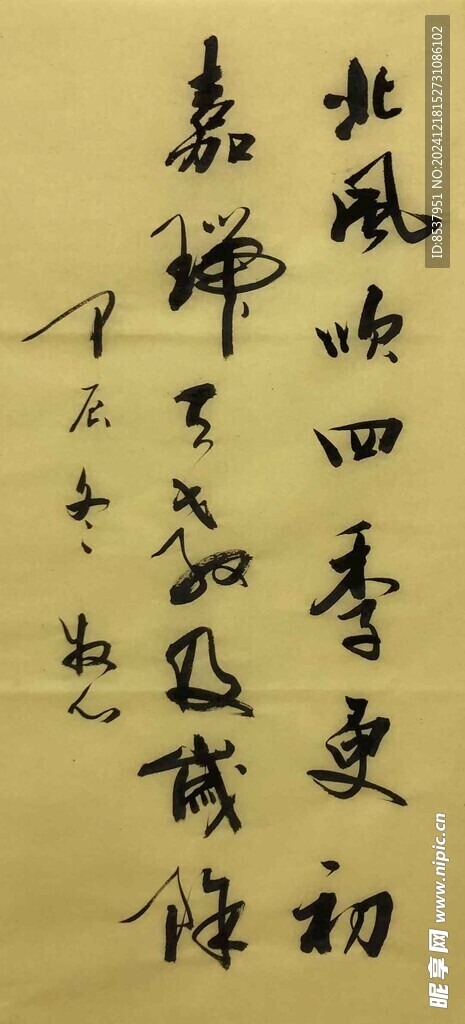 北風吹四季更初
嘉瑞天教及歲除
甲辰冬 牧心
ID:8537951 NO:20241218152731086102
昵享网 www.nipic.cn